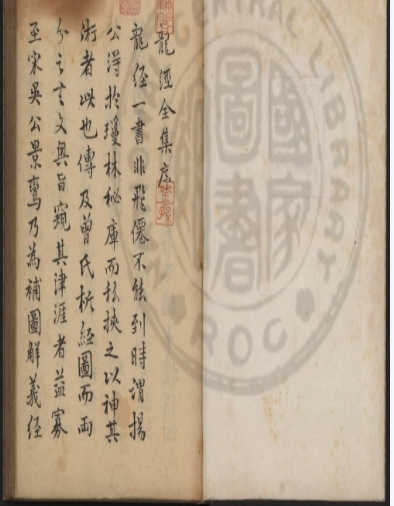 龍經全集序
龍經一書非飛僊不能到時謂楊
公淂於瓊林秘庫而私挾之以神其
術者此也傳及曾氏析經圖而兩
分之言文奥旨窺其津涯者益寡
至宋吳公景鸞乃為補圖解義經
國家
圖書
CENTRAL LIBRARY
ROC